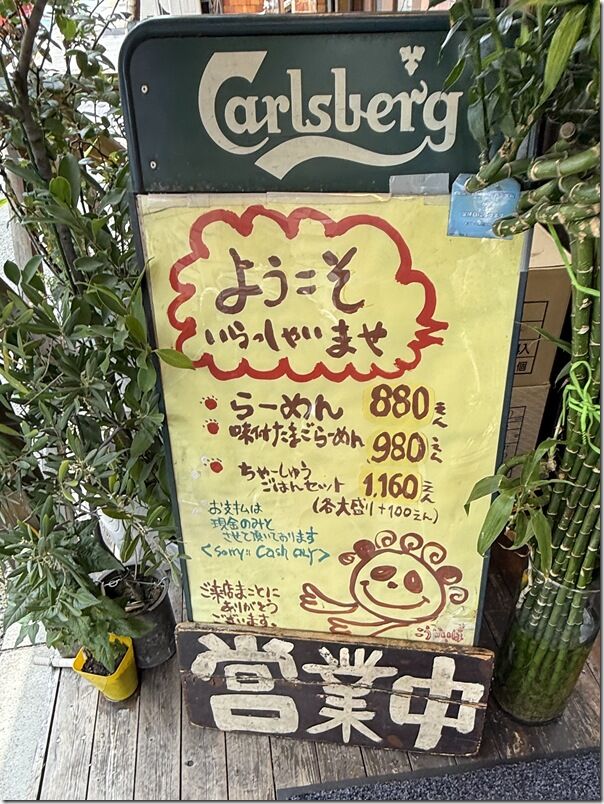 Carlsberg
ようこそ
いらっしゃいませ
らーめん 880えん
味付たまごらーめん 980えん
ちゃーしゅう
ごはんセット 1,160えん
(各大盛り+100えん)
お支払は
現金のみと
させて頂いております
<sorry:: cash only>
ご来店まことに
ありがとう
ございます。
営業中